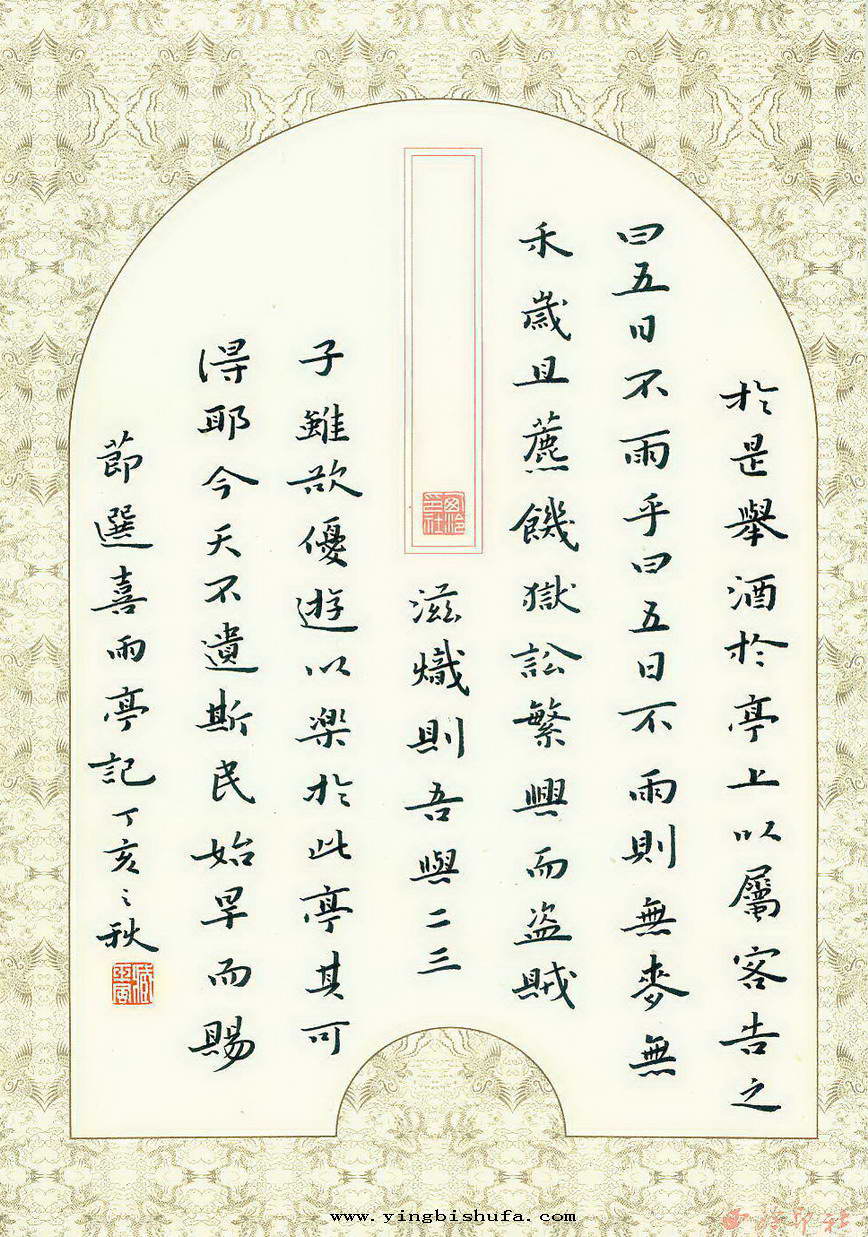 於是舉酒於亭上以屬客告之
曰五日不雨乎曰五日不雨則無麥無
禾歲且薦饑獄訟繁興而盜賊
滋熾則吾與二三
子雖欲優遊以樂於此亭其可
得耶今天不遺斯民始旱而賜
節選喜雨亭記丁亥之秋
西泠印社
www.yingbishufa.com
西泠印社